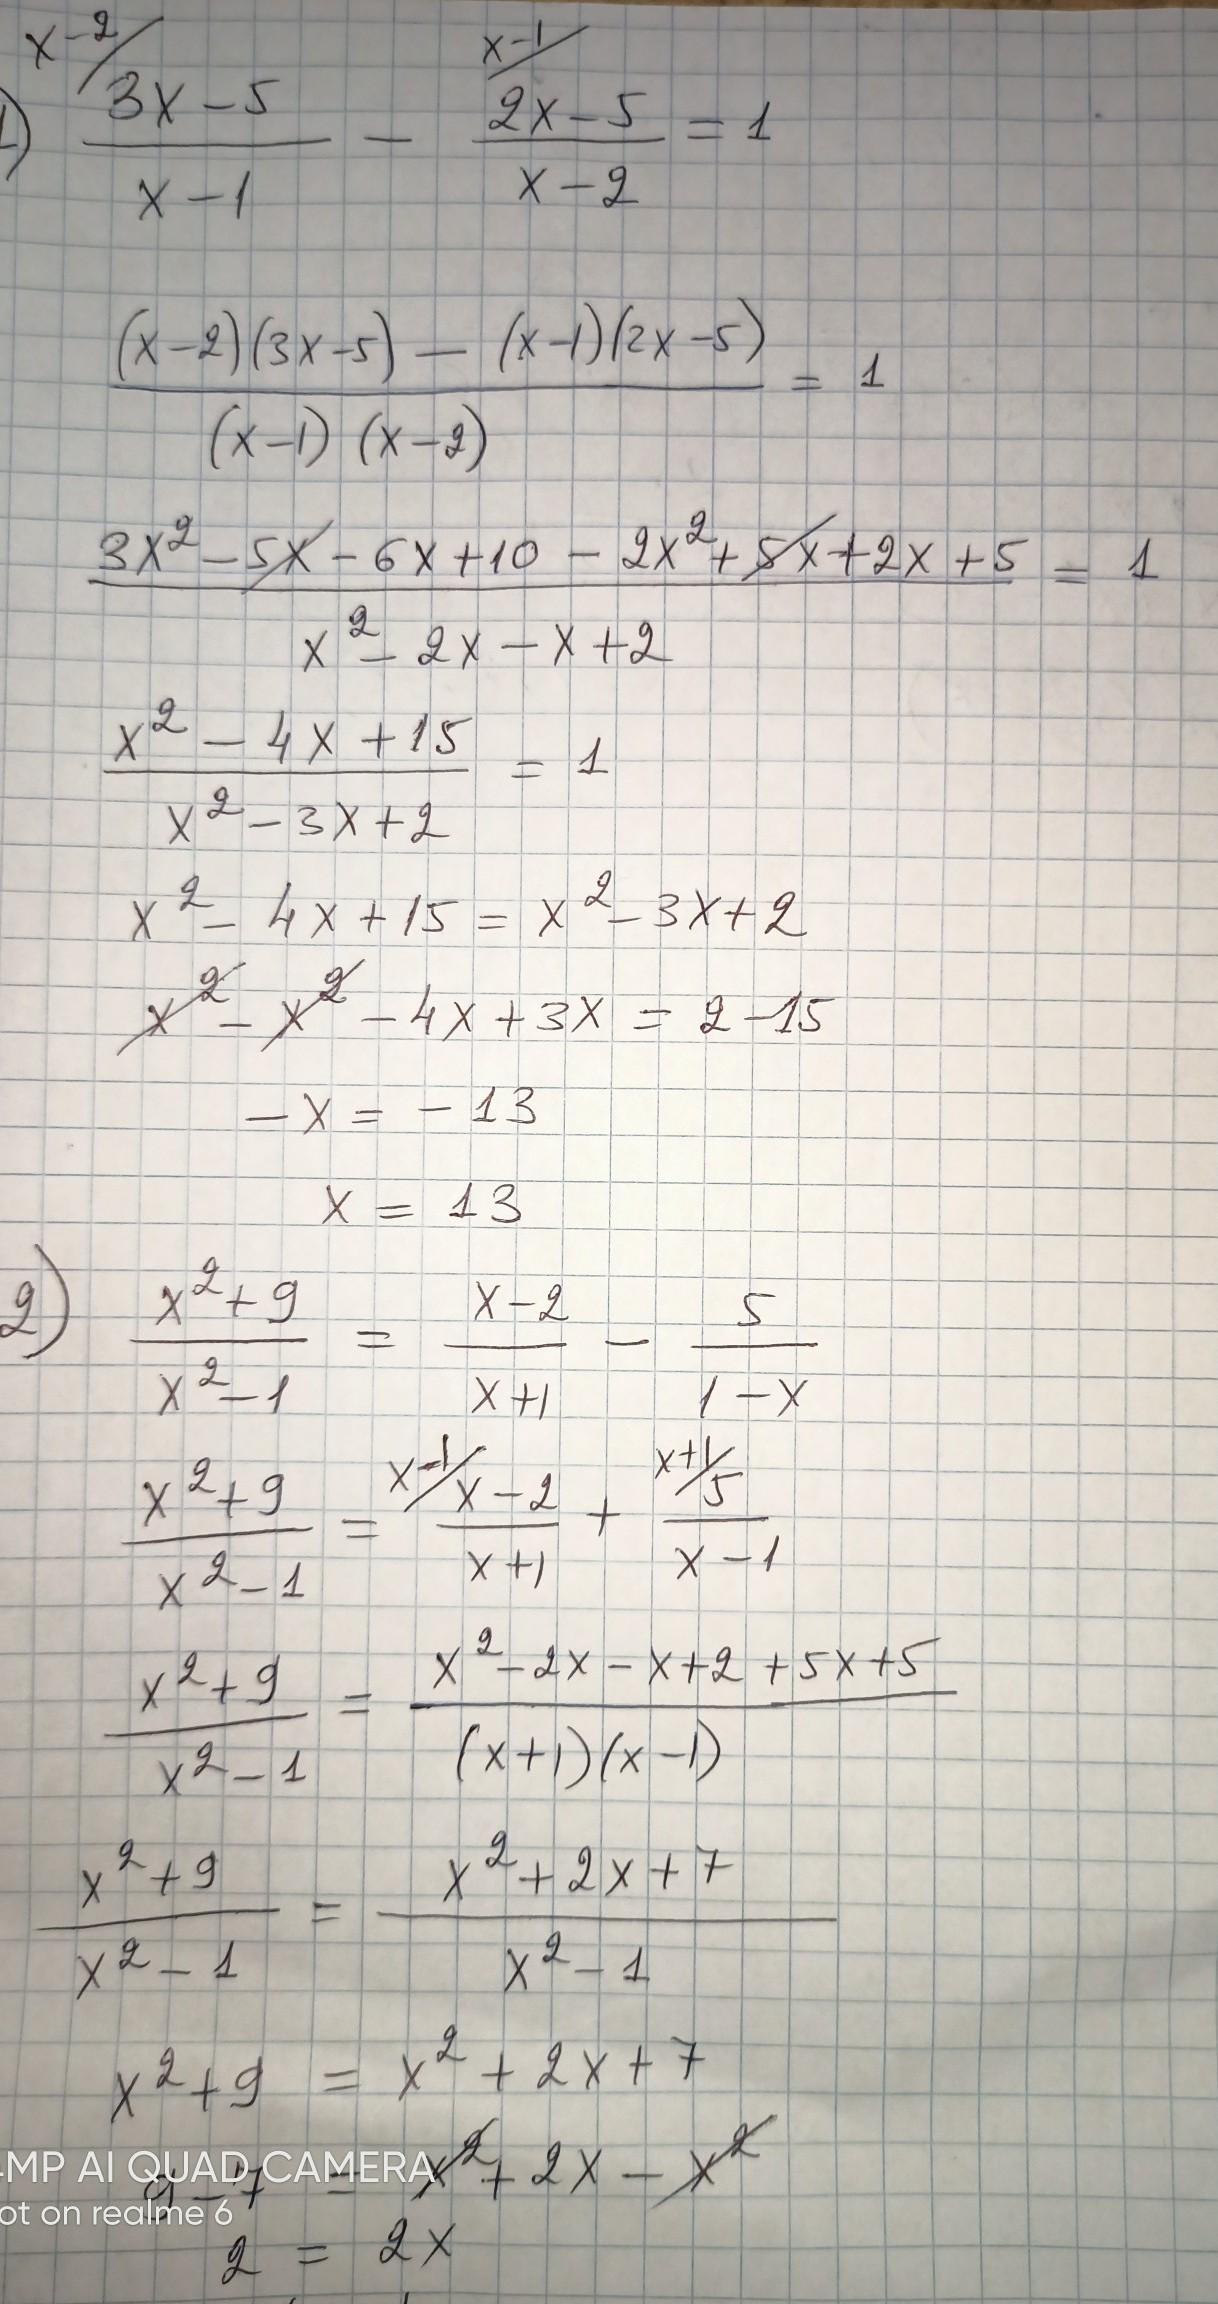 1) x-2/ (3x-5)/(x-1) - x-1/ (2x-5)/(x-2) = 1
((x-2)(3x-5) - (x-1)(2x-5))/((x-1)(x-2)) = 1
(3x² - 5x - 6x + 10 - 2x² + 5x + 2x + 5)/(x² - 2x - x + 2) = 1
(x² - 4x + 15)/(x² - 3x + 2) = 1
x² - 4x + 15 = x² - 3x + 2
x² - x² - 4x + 3x = 2 - 15
-x = -13
x = 13
2) (x²+9)/(x²-1) = (x-2)/(x+1) - 5/(1-x)
(x²+9)/(x²-1) = x-1/ (x-2)/(x+1) + x+1/ 5/(x-1)
(x²+9)/(x²-1) = (x² - 2x - x + 2 + 5x + 5)/((x+1)(x-1))
(x²+9)/(x²-1) = (x² + 2x + 7)/(x²-1)
x²+9 = x² + 2x + 7
9-7 = x² + 2x - x²
2 = 2x
MP AI QUAD CAMERA
ot on realme 6